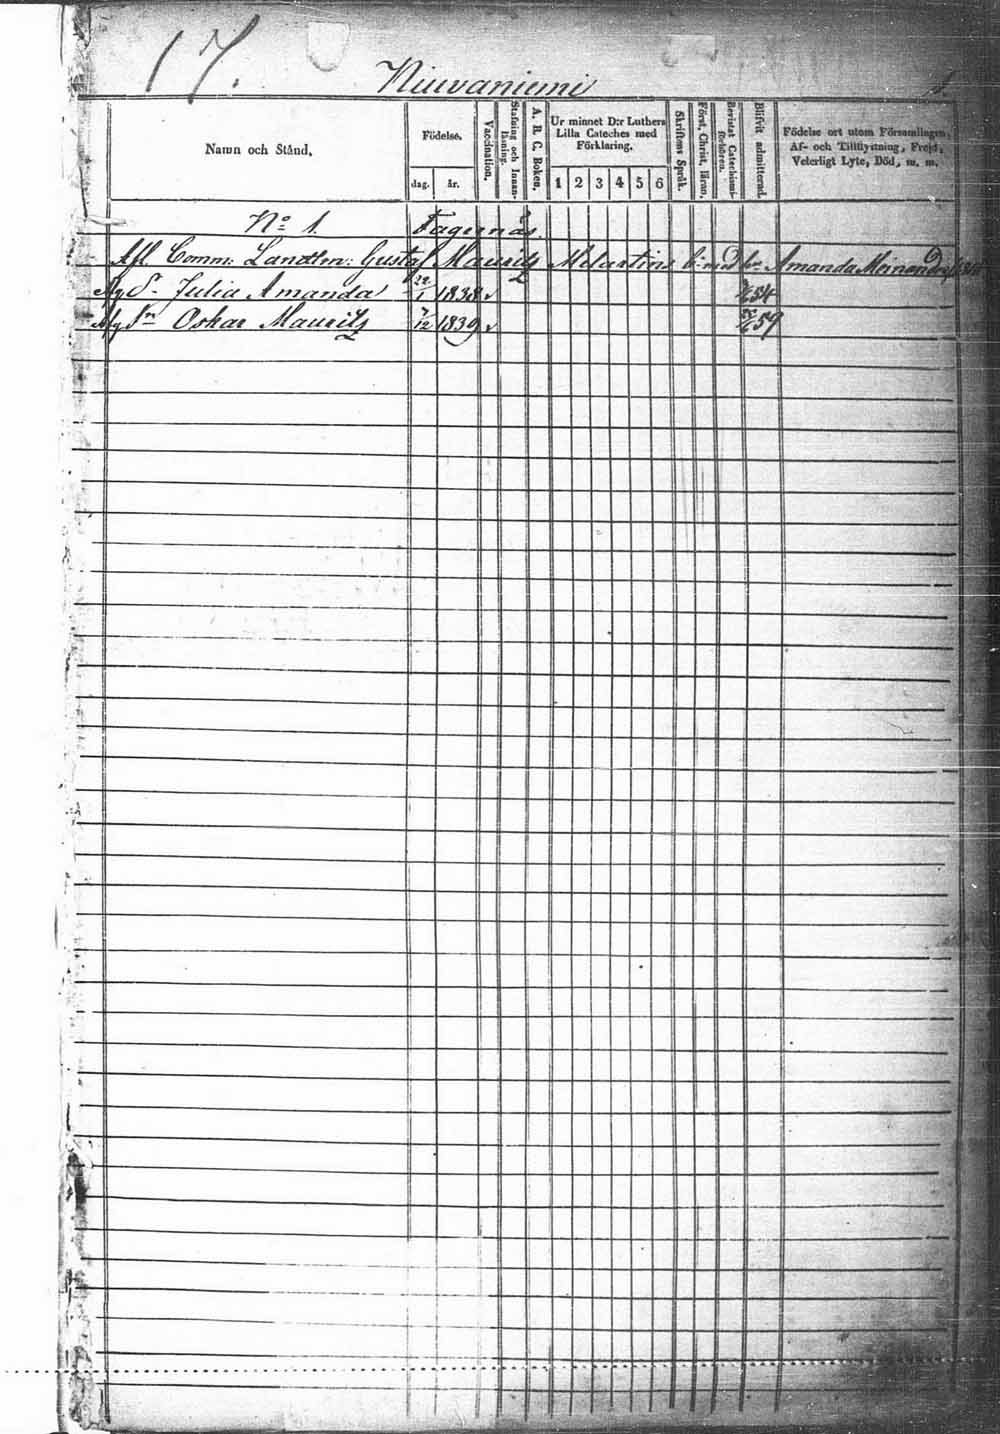 17.
Niuvaniemi
1.
Namn och Stånd.
Födelse.
dag.
år.
Vaccination.
Stafning och Innanläsning.
A. B. C. Boken.
Ur minnet D:r Luthers Lilla Cateches med Förklaring.
1 2 3 4 5 6
Skriftens Språk.
Först. Christ. läran.
Bevistat Catechismi-förhören.
Blifvit admitterad.
Födelse ort utom Församlingen, Af- och Tillflyttning, Frejd, Veterligt Lyte, Död, m. m.
No 1. Fagernäs.
Afl Comm: Landtm: Gustaf Mauritz Melartins Amanda
Dr Julia Amanda 22/1 1838 v 54
Sn Oskar Mauritz 7/12 1839 v 59